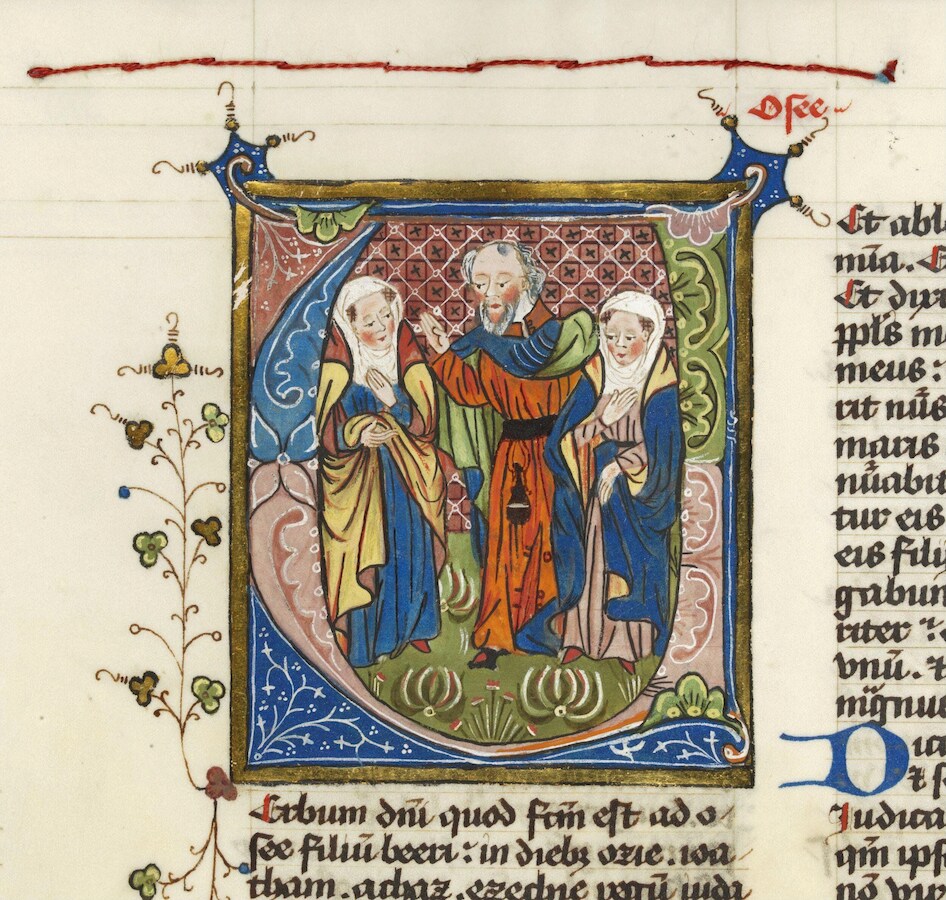 Osee
Erbum dn̄i quod fc̄m est ad o
see filiū beeri : in diebꝫ ozie . ioa
tham . achaz . ezechie regū iuda
Et abl
mīa . E
Et dix
pp̄ls m
meus :
rit nūs
maris
nūabi
tur eis
eis filij
gabun
riter :
vnū . ⁊
mīgnu
Dica
⁊ s
Iudica
qm̄ ips
nō vir